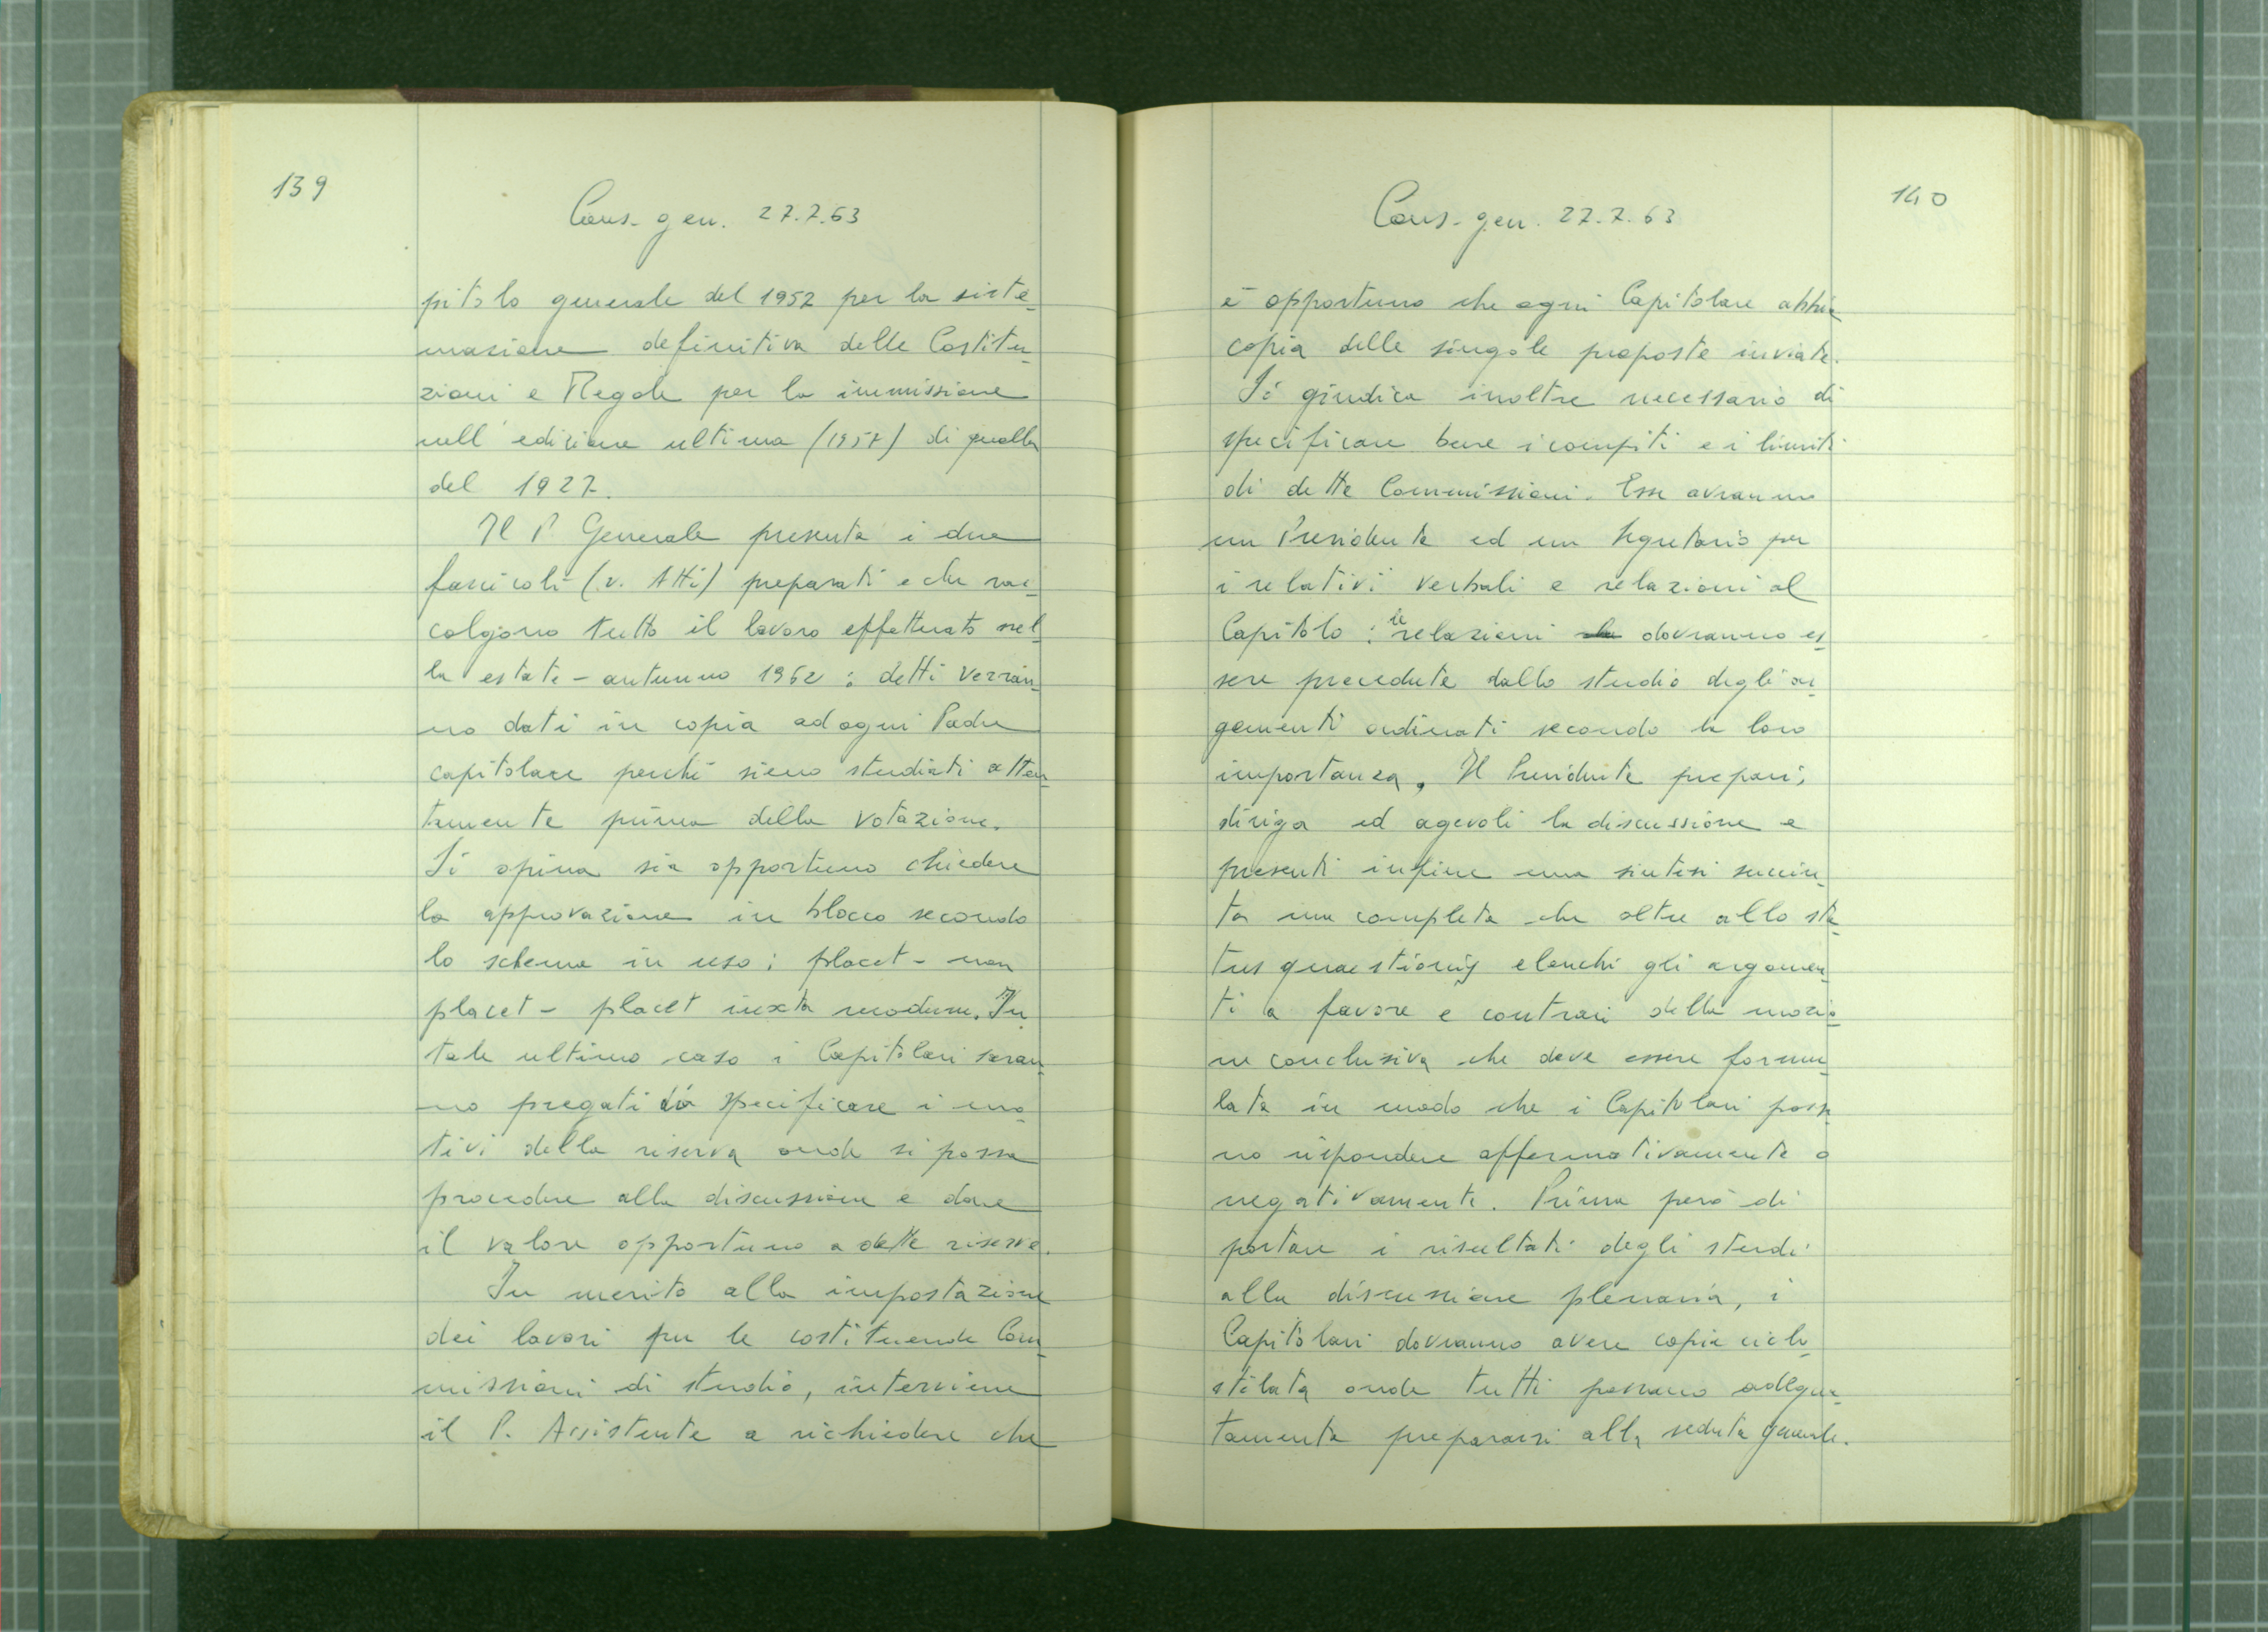 139
Cons. gen. 27.7.63
pitolo generale del 1952 per la siste_
mazione definitiva delle Costitu_
zioni e Regole per la immissione
nell'edizione ultima (1957) di quella
del 1927.
Il P Generale presenta i due
fascicoli (v. Atti) preparati e che rac_
colgono tutto il lavoro effettuato nel_
la estate - autunno 1962 : detti verran_
no dati in copia ad ogni Padre
capitolare perché siano studiati atten_
tamente prima della votazione.
Si opina sia opportuno chiedere
la approvazione in blocco secondo
lo schema in uso : placet - non
placet - placet iuxta modum. In
tale ultimo caso i Capitolari saran_
no pregati di specificare i mo_
tivi della riserva onde si possa
procedere alla discussione e dare
il valore opportuno a dette riserve.
In merito alla impostazione
dei lavori per le costituende Com_
missioni di studio, interviene
il P. Assistente a richiedere che
140
Cons. gen. 27.7.63
è opportuno che ogni Capitolare abbia
copia delle singole proposte inviate.
Si giudica inoltre necessario di
specificare bene i compiti e i limiti
di dette Commissioni. Esse avranno
un Presidente ed un Segretario per
i relativi verbali e relazioni al
Capitolo : le relazioni dovranno es_
sere precedute dallo studio degli ar_
gomenti ordinati secondo la loro
importanza. Il Presidente prepari,
diriga ed agevoli la discussione e
presenti infine una sintesi succin_
ta ma completa che oltre allo sta_
tus quaestionis elenchi gli argomen_
ti a favore e contrari della mozio_
ne conclusiva che deve essere formu_
lata in modo che i Capitolari possa
no rispondere affermativamente o
negativamente. Prima però di
portare i risultati degli studi
alla discussione plenaria, i
Capitolari dovranno avere copia ciclo_
stilata onde tutti possano adegua_
tamente prepararsi alla seduta generale.